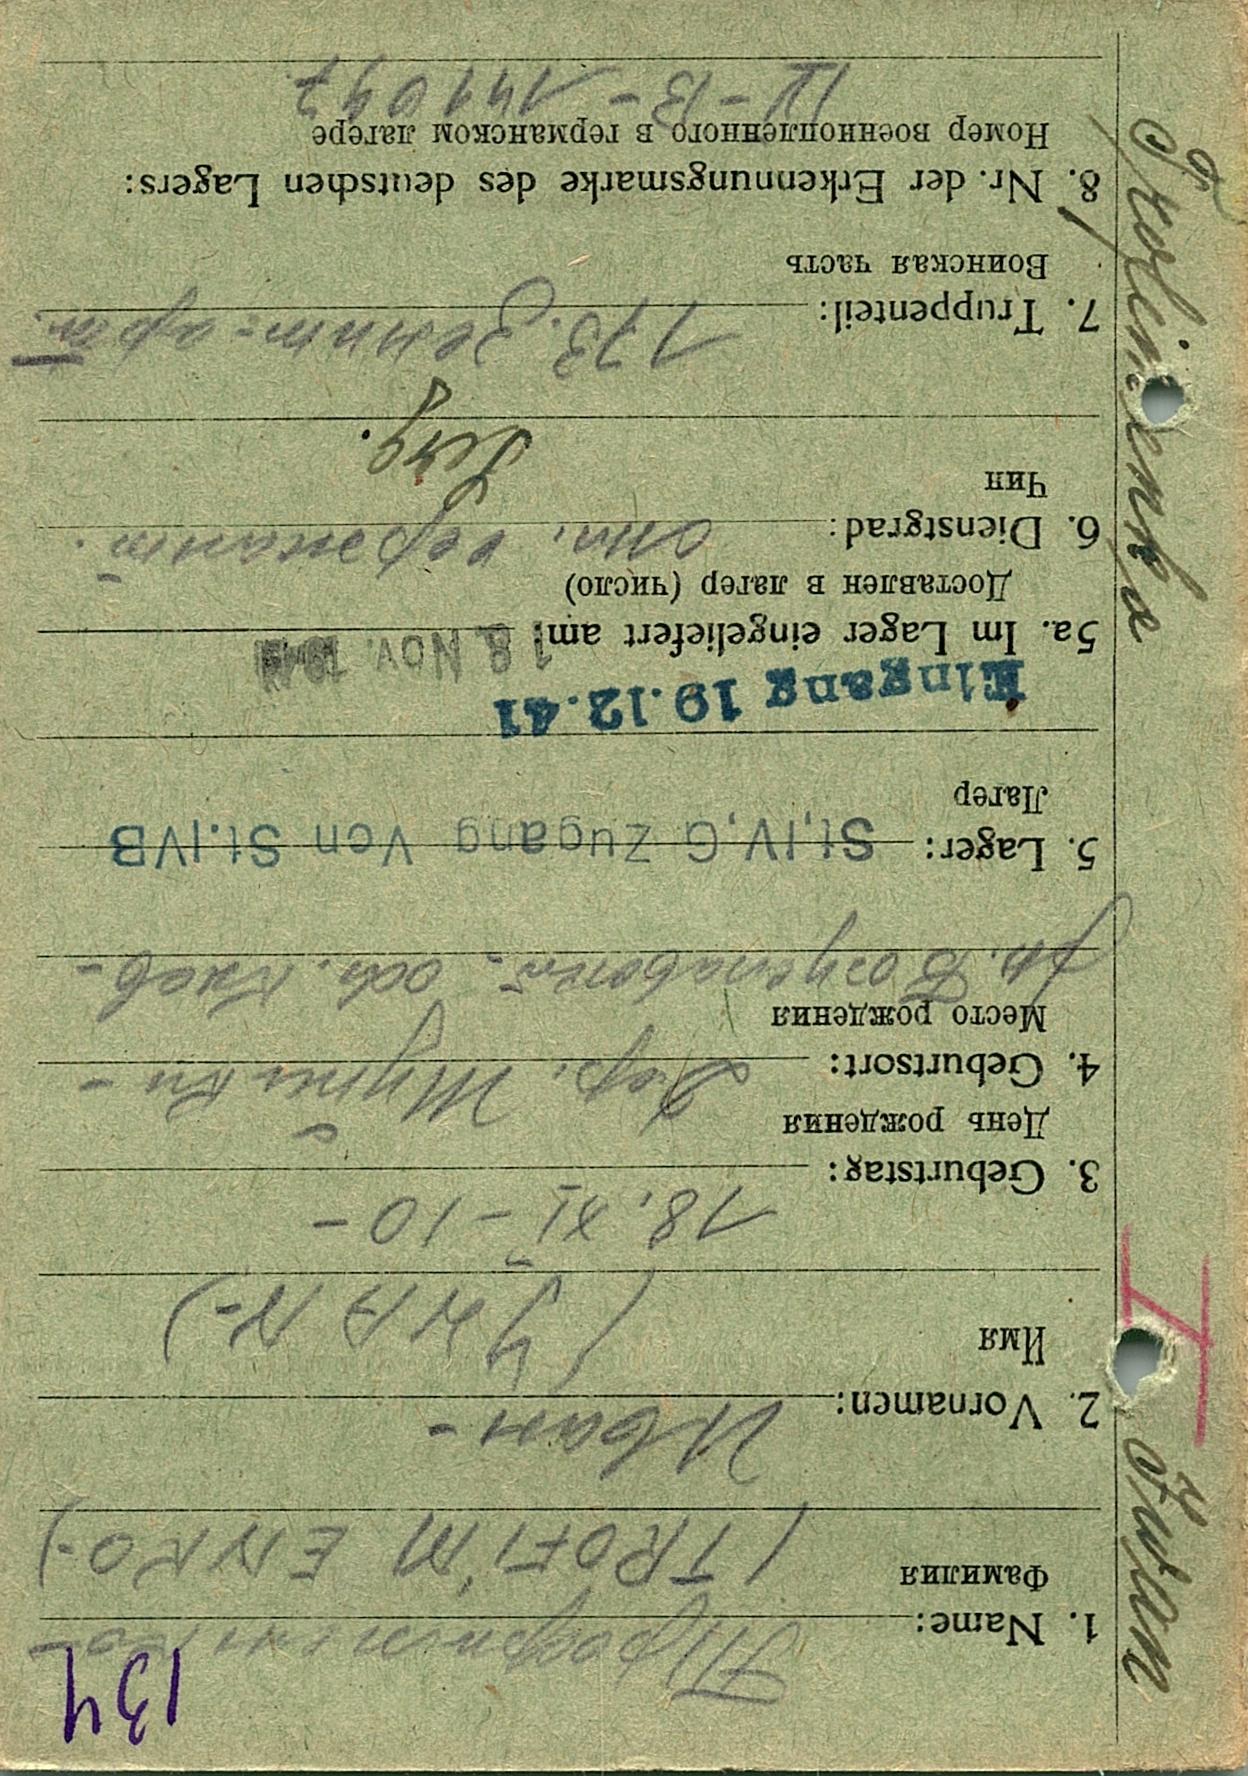 134
1. Name: Трофименко-
Фамилия
(TROFIM ENKO-)
2. Vornamen: Иван-
Имя
(IWAN-)
18. XI - 10 -
3. Geburtstag:
День рождения
4. Geburtsort: Дер.
Место рождения
рн. обл. Киев-
5. Lager: St.IV.G Zugang Von St.IVB
Лагер
Eingang 19.12.41
5a. Im Lager eingeliefert am: 18. NOV. 1941
Доставлен в лагер (число)
6. Dienstgrad: сержант.
Чин
7. Truppenteil: 173. зенит-арт.
Воинская часть
8. Nr. der Erkennungsmarke des deutschen Lagers:
Номер военнопленного в германском лагере
IV-B- 141097
Iwan
I
Trofimenko